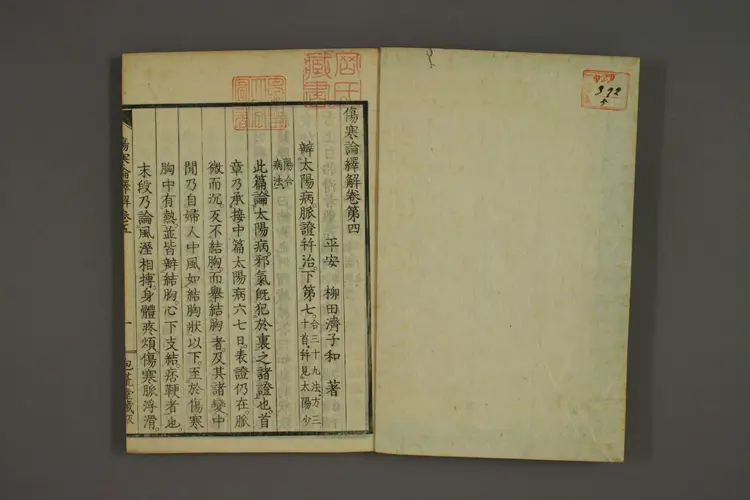 傷寒論繹解卷第四
平安 柳田濟子和 著
辨太陽病脈證幷治下第七 合三十九法方三十首幷見太陽少
陽合病法
此篇論太陽病邪氣旣犯於裏之諸證也首
章乃承接中篇太陽病六七日表證仍在脈
微而沉反不結胸而擧結胸者及其諸變中
間乃自婦人中風如結胸狀以下至於傷寒
胸中有熱並皆辨結胸心下支結痞鞕者也
末段乃論風溼相搏身體疼煩傷寒脈浮滑
傷寒論繹解卷五
一
392
5